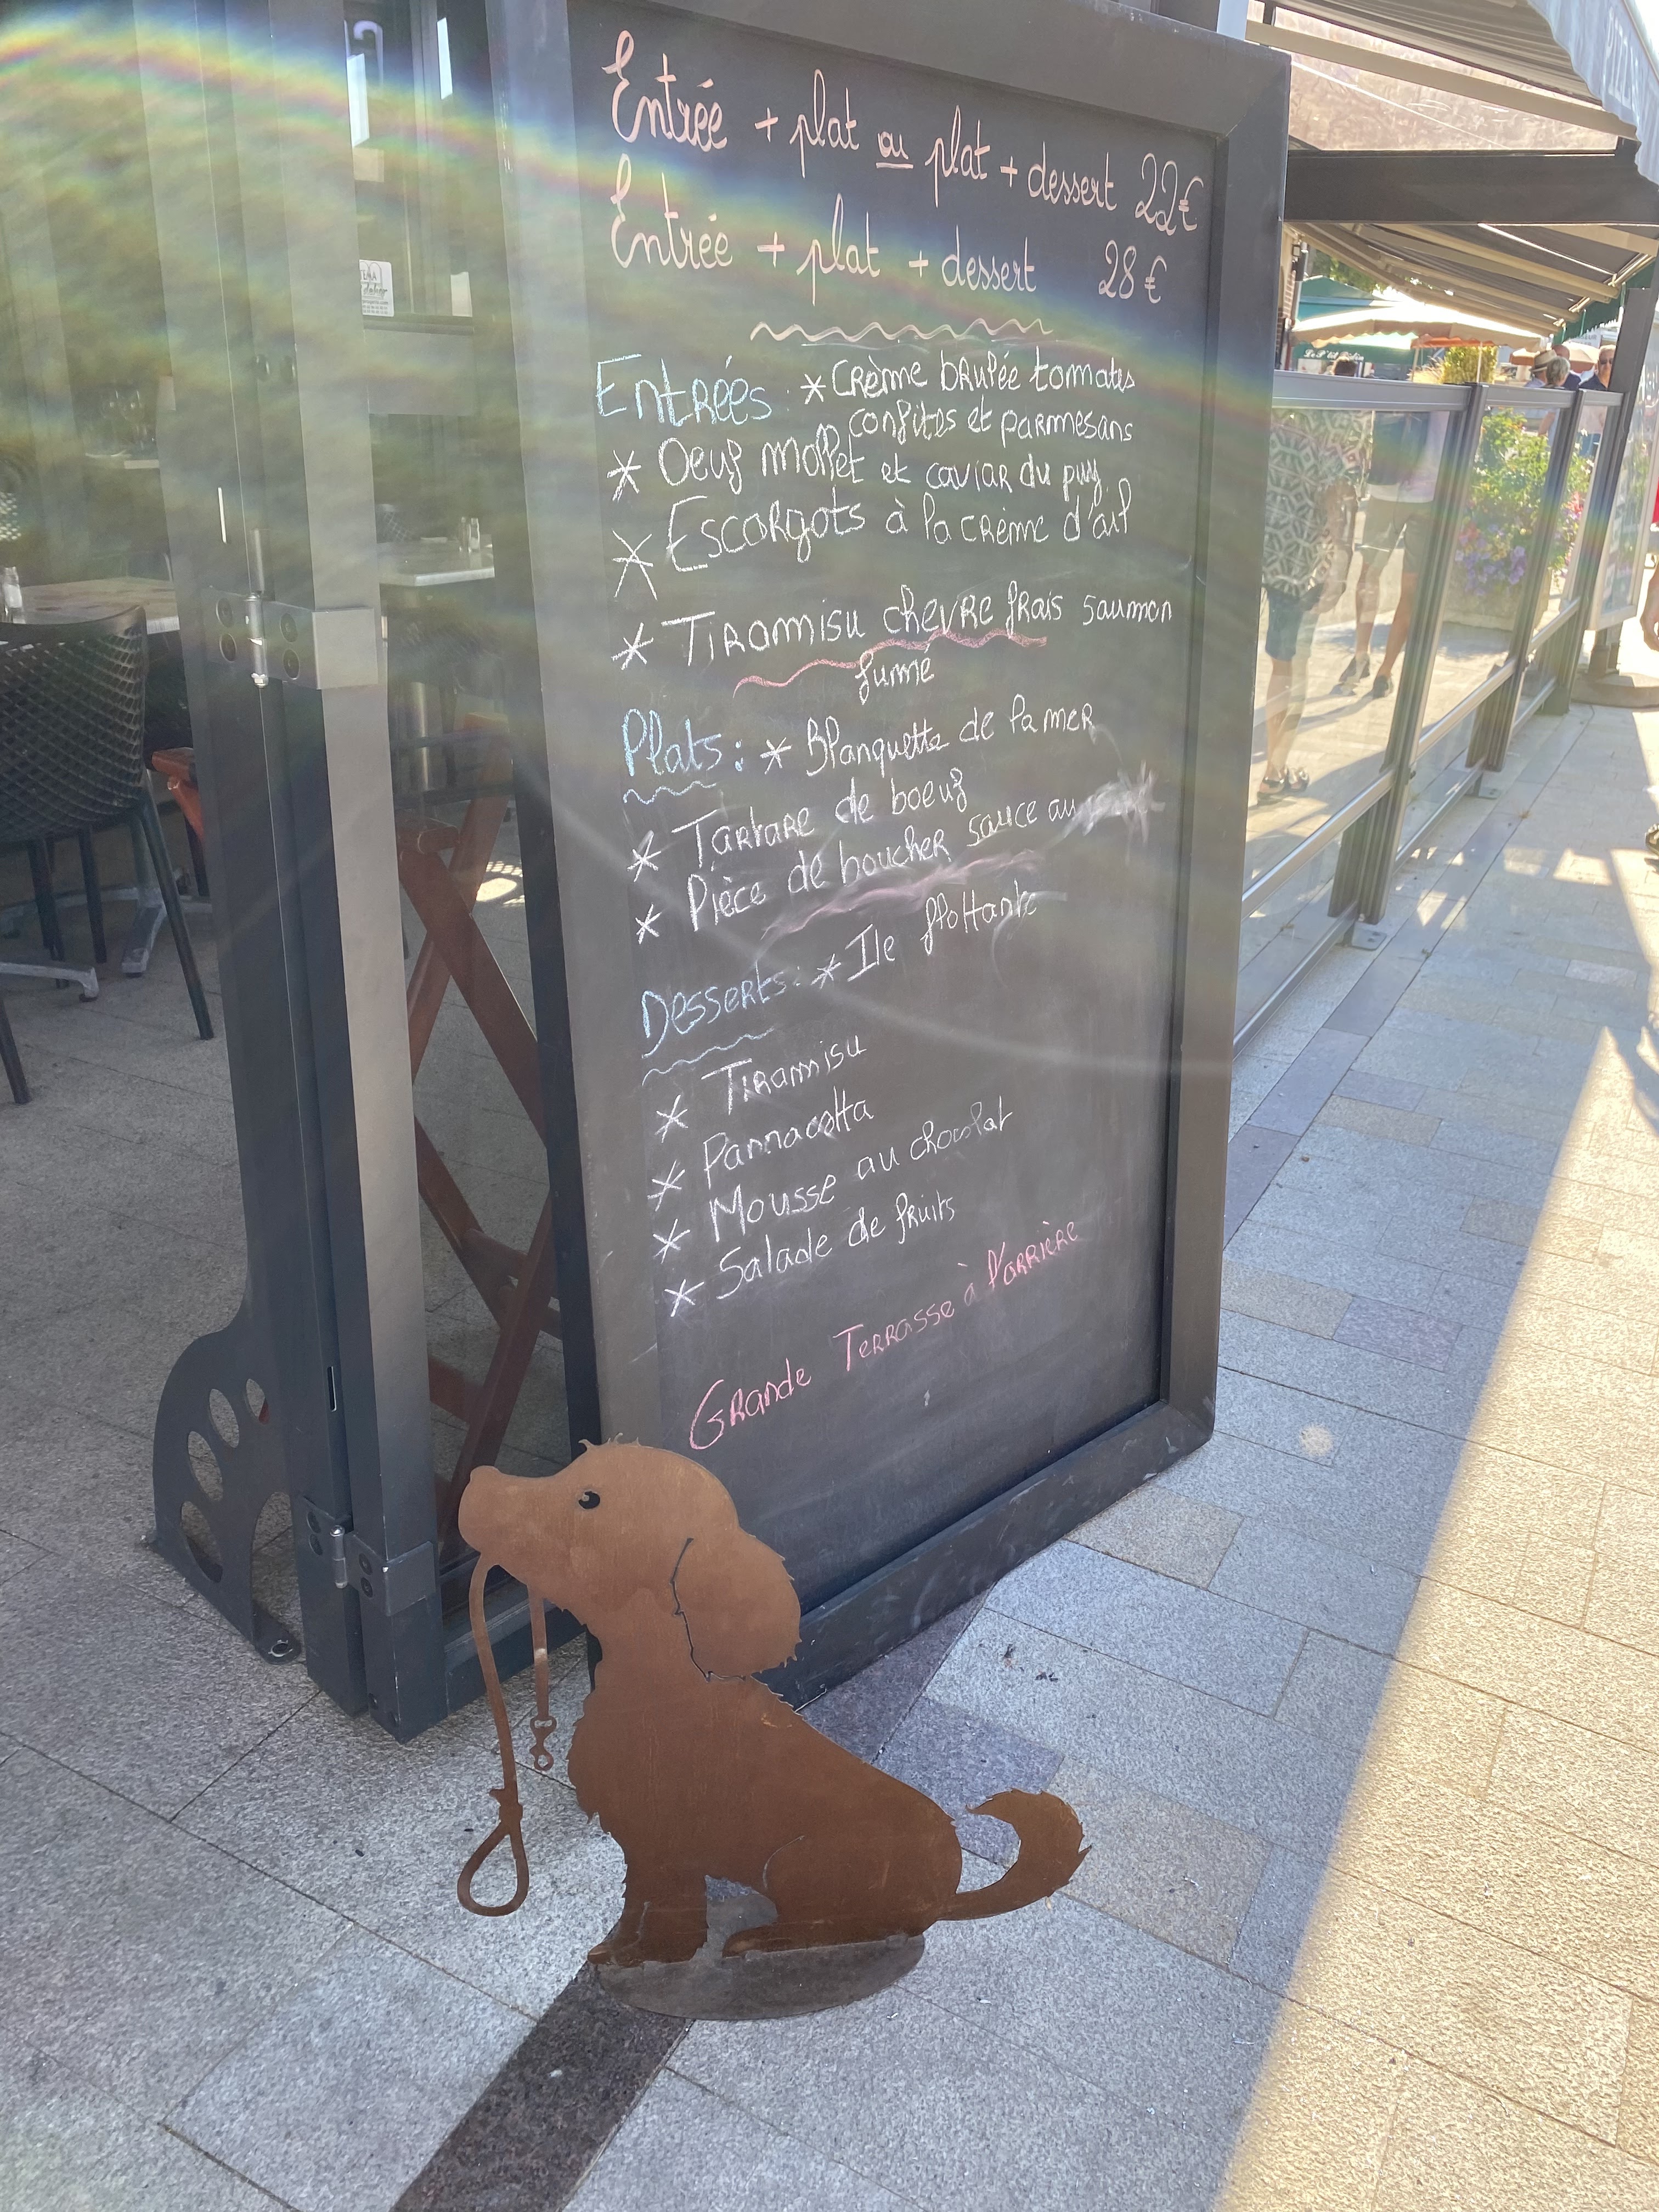 Entrée + plat ou plat + dessert 22€
Entrée + plat + dessert 28€
Entrées : * Crème brulée tomates
confites et parmesans
* Oeuf mollet et caviar du puy
* Escargots à la crème d'ail
* Tiramisu chevre frais saumon
fumé
Plats : * Blanquette de la mer
* Tartare de boeuf
* Pièce de boucher sauce au
Desserts : * Ile flottante
* Tiramisu
* Pannacotta
* Mousse au chocolat
* Salade de fruits
Grande Terrasse à l'arrière